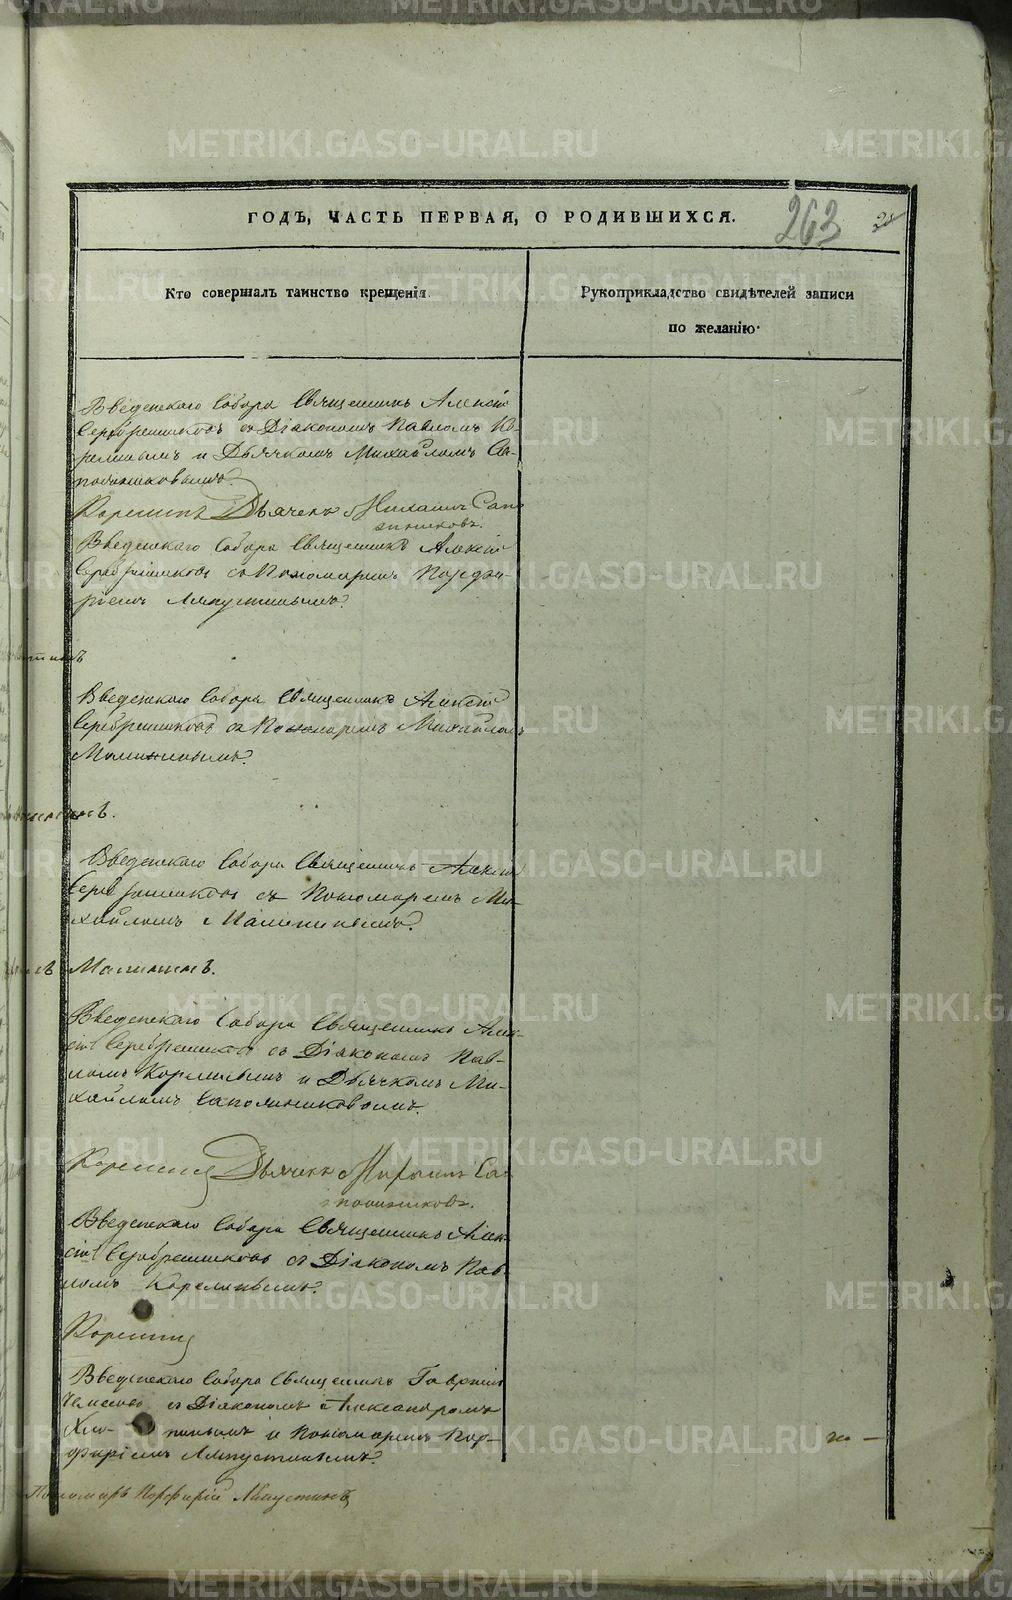 ГОДЪ, ЧАСТЬ ПЕРВАЯ, О РОДИВШИХСЯ.
263
28
Кто совершалъ таинство крещенія
Рукоприкладство свидѣтелей записи
по желанію.
Введенскаго Собора Священникъ Алексій
Серебренниковъ съ Діакономъ Павломъ Ко-
релинымъ и Дьячкомъ Михайломъ Са-
пожниковымъ.
Корелинъ Дьячекъ Михаилъ Сапо
жниковъ.
Введенскаго Собора Священникъ Алексій
Серебренниковъ съ Пономаремъ Порфи-
ріемъ Ляпустинымъ.
Введенскаго Собора Священникъ Алексій
Серебренниковъ съ Пономаремъ Михайломъ
Малининымъ.
Введенскаго Собора Священникъ Алексій
Серебренниковъ съ Пономаремъ Ми-
хайломъ Малининымъ.
Малининъ.
Введенскаго Собора Священникъ Алек-
сій Серебренниковъ съ Діакономъ Пав-
ломъ Корелинымъ и Дьячкомъ Ми-
хайломъ Сапожниковымъ.
Корелинъ Дьячекъ Михаилъ Са-
пожниковъ.
Введенскаго Собора Священникъ Алек-
сій Серебренниковъ съ Діакономъ Пав-
ломъ Корелинымъ.
Корелинъ
Введенскаго Собора Священникъ Гавріилъ
съ Діакономъ Александромъ
и Пономаремъ Пор-
фиріемъ Ляпустинымъ.
Пономарь Порфирій Ляпустинъ
METRIKI.GASO-URAL.RU